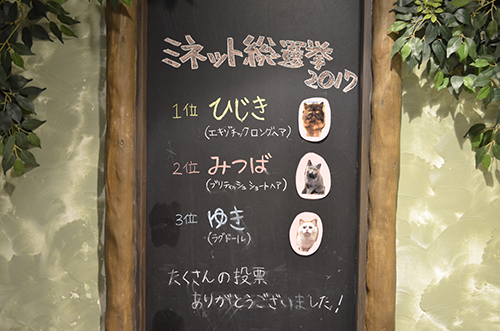 ミネット総選挙
2017
1位 ひじき
(エキゾチックロングヘア)
2位 みつば
(ブリティッシュショートヘア)
3位 ゆき
(ラグドール)
たくさんの投票
ありがとうございました!